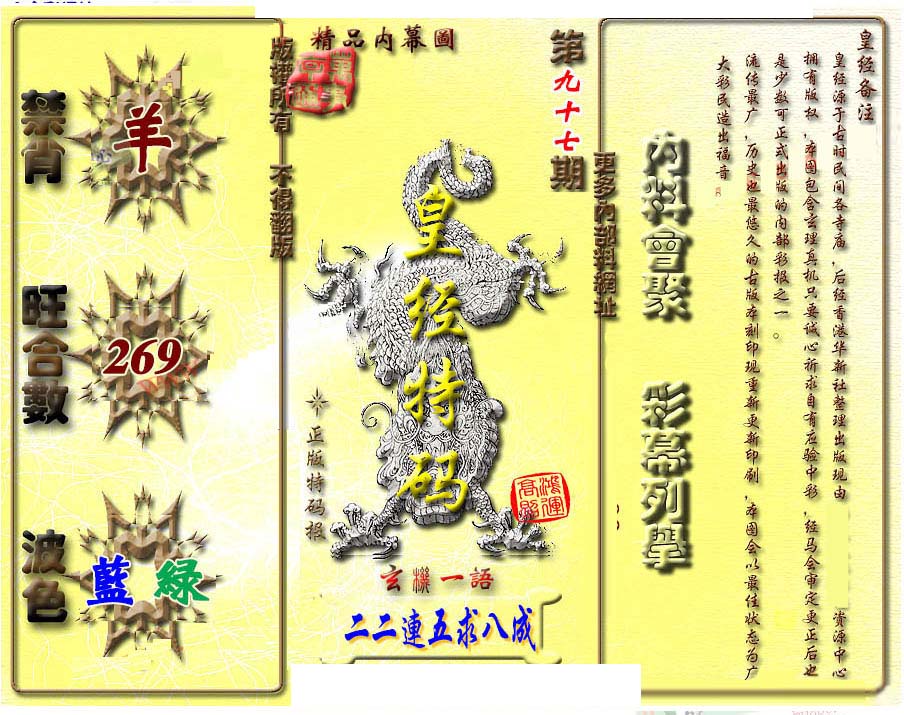 精品内幕圖
第九十七期
版權所有 不得翻版
更多內部料網址
禁肖
羊
旺合數
269
波色
藍 緑
皇经特码
正版特码报
鴻運
高照
玄機一語
二二連五求八成
內料會聚
彩幕列舉
皇经备注
皇经源于古时民间各寺庙，后经香港华新社整理出版现由 资源中心
拥有版权，本图包含玄理真机只要诚心祈求自有应验中彩，经马会审定更正后也
是少数可正式出版的内部彩报之一。
流传最广，历史也最悠久的古版本刻印现重新更新印刷，本图会以最佳状态为广
大彩民造出福音